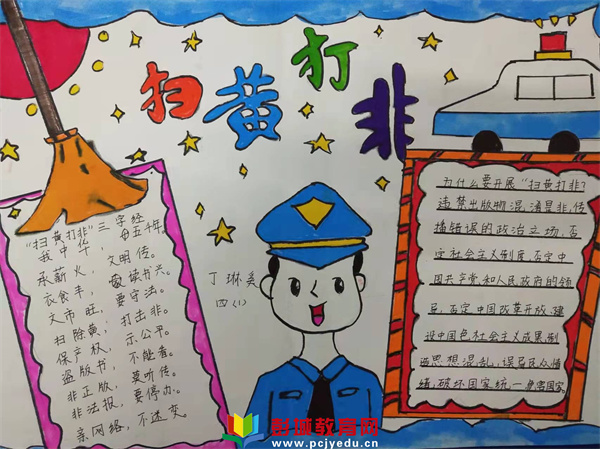 扫黄打非
"扫黄打非"三字经
我中华,每五千年
承薪火,文明传。
衣食丰,敬读书兴。
文市旺,要守法。
扫除黄,打击非。
保产权,示公平。
盗版书,不能看。
非正版,莫听传。
非法报,要停办。
亲网络,不迷变。
丁琳奚
四(1)
为什么要开展"扫黄打非?
违禁出版物混淆是非,传
播错误的政治立场,否
定社会主义制度,否定中
国共产党和人民政府的领
导,否定中国改革开放,建
设中国色社会主义成果,制
造思想混乱,误导民众情
绪,破坏国家统一,危害国家
彭城教育网
www.pcjyedu.cn